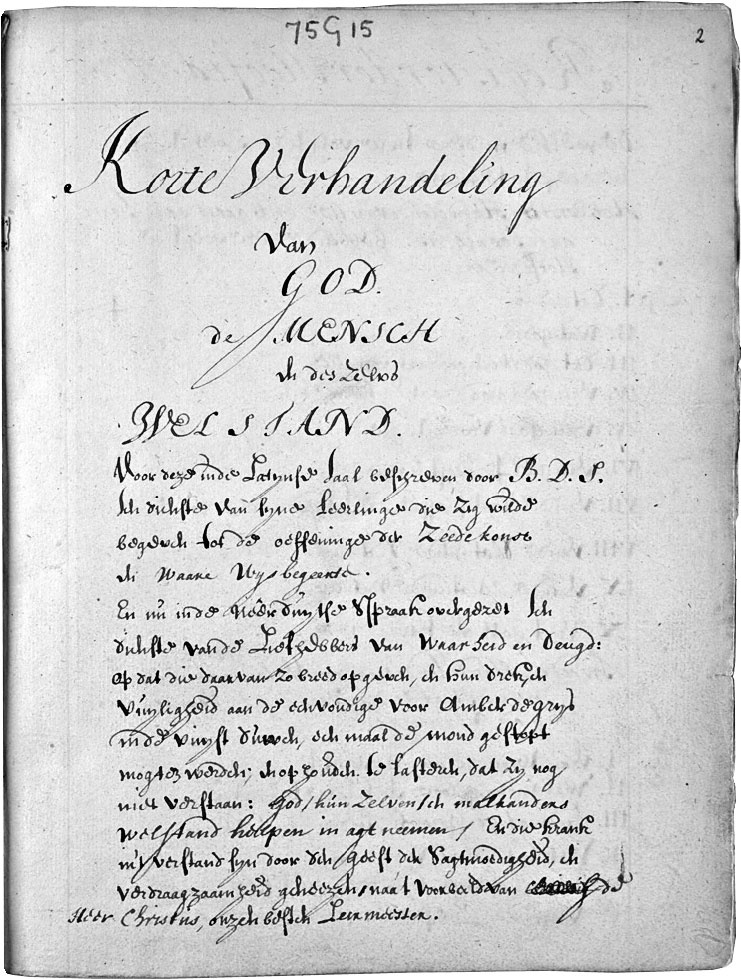 75G15
2
Korte Verhandeling
van
GOD.
de MENSCH
en deszelvs
WELSTAND.
Voor deze inde Latynse taal beschreven door B. D. S.
ten dienste van syne Leerlinge die zig wilde
begeven tot de oeffeninge der Zeedekonst
en Waare Wysbegeerte.
En nu inde Neerduytse Spraake overgezet ten
dienste vande Liefhebbers van Waarheid en Deugd:
op dat die daar van zo breed opgeven, en hun drek en
vuyligheid aan de eenvoudige voor Amber de grys
inde vuyst duwen, een maal de mond gestopt
mogten werden; en ophouden te lasteren, dat zy nog
niet verstaan: God, hun zelven, en malkanders
welstand helpen in agt neemen, En die krank
in 't verstand syn door den geest der Sagtmoedigheid, en
verdraagzaamheid geneezen, na 't voorbeeld van de
Heer Christus, onzen besten Leermeester.